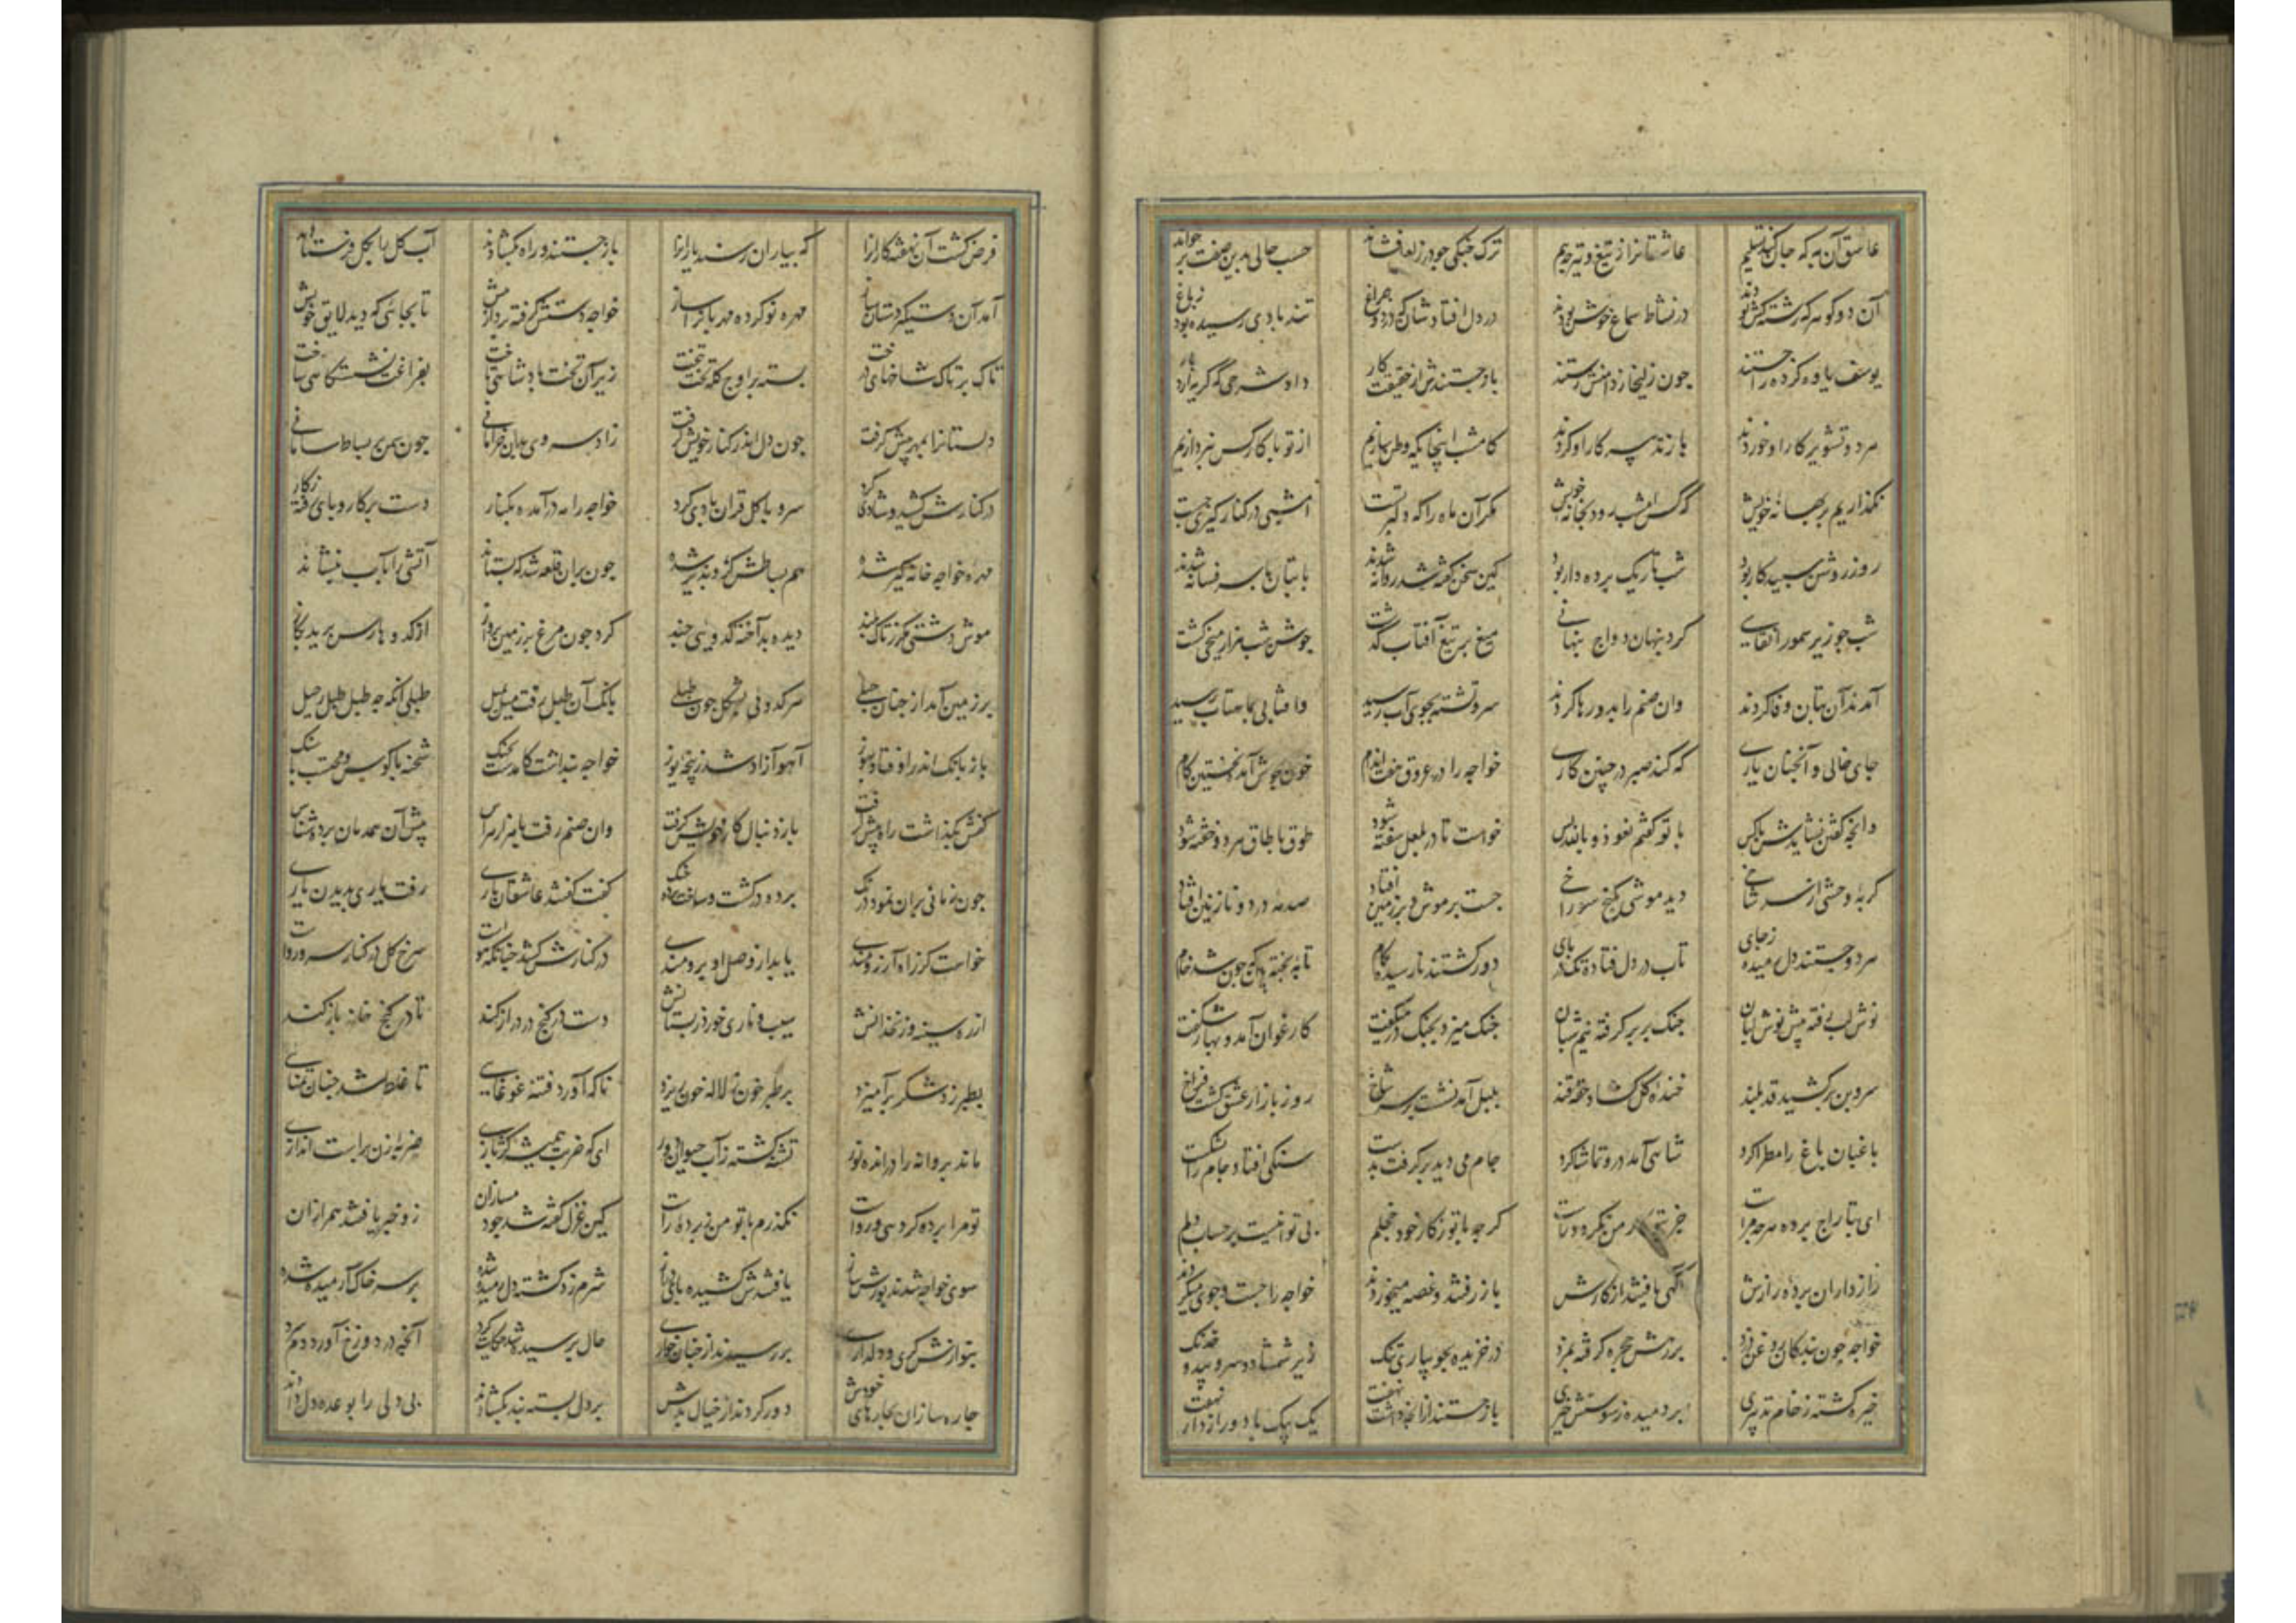 عاشق آن به که جان کند تسلیم عاشقانرا ز تیغ و تیر چه بیم ترک چنگی چو در ز لعل فشاند حسب حالی بدین صفت برخواند
آن دو کوهر که رشته کش بودند در نشاط سماع خوش بودند در دل افتادشان که در چراغ تند بادی رسیده بود ز باغ
یوسف یاوه کرده را جستند چون زلیخا ز دامنش رستند باز جستندش از حقیقت کار داد شرحی که کریه آرد بار
هر دو تشویر کار او خوردند باز تدبیر کار او کردند کامشب اینجایکه وطن سازیم از تو با کار کس نپردازیم
نکذاریم بر بهانه خویش که کس امشب رود بخانه خویش مکر آن ماه را که دلبر تست امشبی در کنار کیری چست
روز روشن سپید کار بود شب تاریک پرده دار بود کین سخن کفته شد روانه شدند با بتان بر سر فسانه شدند
شب چو زیر سمور انقاسی کرد پنهان دواج میغ بر تیغ آفتاب کذشت جوشن شب هزار میخی کشت
آمدند آن بتان وفا کردند وان صنم را بدو رها کردند سرو تشنه بجوی آب رسید وافتابی بماهتاب رسید
جای خالی و آنچنان یاری که کند صبر در چنین کاری خواجه را در عروق هفت اندام خون بجوش آمد از نخستین کام
وانچه کفتن نشایدش با کس با تو کفتم نعوذ و بالله بس خواست تا در بلعل سفته شود طوق با طاق هر دو خفته شود
کربه وحشی از سر شاخی دید موشی بکنج سوراخی جست بر موش و بر زمین افتاد صدمه در دو نازنین افتاد
هر دو جستند دل رمیده ز جای تاب در دل فتاده تک در پای دور کشتند نارسیده بکام تابه پخته بین که چون شد خام
نوش لب رفته پیش نوش لبان چنک بر بر کرفته نیم شبان چنک میزد بچنک در میکفت کارغوان آمد و بهار شکفت
سرو بن بر کشید قد بلند خنده کل کشاد حقه قند بلبل آمد نشست بر سر شاخ روز بازار عشق کشت فراخ
باغبان باغ را مطرا کرد شاهی آمد درو تماشا کرد جام می دید بر کرفت بدست سنکی افتاد و جام را بشکست
ای بتاراج برده هر چه مراست جز بتو کار من نکردد راست کر چه با تو ز کار خود خجلم بی تو نیست بر حساب دلم
راز داران پرده رازش آکهی یافتند از کارش باز رفتند و غصه میخوردند خواجه را جست و جوی میکردند
خواجه چون بندکان بروز رهش حجره کرفته بمزد در خزیده بجویباری تنک زیر شمشاد و سرو و بید و خدنک
خیره کشته ز خام تدبیری بر دمیده ز سوسنش خیری باز جستند از آنچه داشت نهفت یک بیک با دو رازدار بکفت
فرض کشت آن نهفته کارانرا که بیاران رسند یارانرا باز جستند و راه بکشادند آب کل را بکل فرستادند
آمد آن دستکیر دستان ساز مهره نو کرده مهربانی ساز خواجه دستش کرفته رفت از پیش تا بجائی که دید لایق خویش
تاک بر تاک شاخهای درخت بسته بر اوج کله تخت بتخت زیر آن تخت پادشاهی تاخت بفراغت نشستکاهی ساخت
دلستانرا بمهر پیش کرفت چون دل اندر کنار خویش کرفت زاد سروی بدان خرامانی چون سمن بر بساط سامانی
در کنارش کشید و شادی کرد سرو با کل قران بادی کرد خواجه را مه در آمده بکنار دست بر کار و پای رفته ز کار
مهره خواجه خانه کیر شده هم بساطش کرو پذیر شده چون بران قلعه شد که بستاند آتشی را بآب بنشاند
موش دشتی مکر ز تاک بلند دیده بد آخته کدویی چند کرد چون مرغ بر رسن پرواز از کدو ها رسن برید بکاز
بر زمین آمد از چنان حبلی سر کدوئی بشکل چون طبلی بانک آن طبل رفت میل بمیل طبلی آنکه چه طبل طبل رحیل
باز بانک اندر اوفتاد بیوز آهو آزاد شد ز پنجه یوز خواجه پنداشت کامدست بجنک شحنه با کوس و محتسب با سنک
کفش بکذاشت راه پیش کرفت باز دنبال کار خویش کرفت وان صنم رفت با هزار هراس پیش آن همدمان پرده شناس
چون زمانی بران نمود درنک پرده در کشت و ساخت پرده چنک کفت کفتند عاشقان باری رفت یاری بدیدن یاری
خواست کز راه آرزومندی یابد از وصل او برومندی در کنارش کشد چنانکه هواست سرخ کل در کنار سرو رواست
از ره سینه و زنخدانش سیب و ناری خورد ز بستانش دست در کنج در دراز کند تا در کنج خانه باز کند
بطبرزد شکر بر آمیزد بر طبر خون ز لاله خون ریزد ناکه آورد فتنه غوغایی تا غلط شد چنان تمنایی
ماند پروانه را در انده نور تشنه کشته ز آب حیوان دور ای که ضربت همیشه کژ بازی ضربه زن براست اندازی
تو مرا پرده کژ دهی و رواست نکذرم با تو من ز پرده راست کین غزل کفته شد چو دمسازان زو خبر یافتند همرازان
سوی خواجه شدند پوزش ساز یافتندش کشیده پای دراز شرم زد کشته دل رمیده شده بر سر خاک آرمیده شده
بنوازش کری و دلداری بر رسیدند از چنان خواری حال پرسیده شد حکایت کرد آنچه در دوزخ آورد دم سرد
چاره سازان بچارهای خودش دور کردند از خیال بدش بر دل بسته بند بکشادند بی دلی را بوعده دل دادند